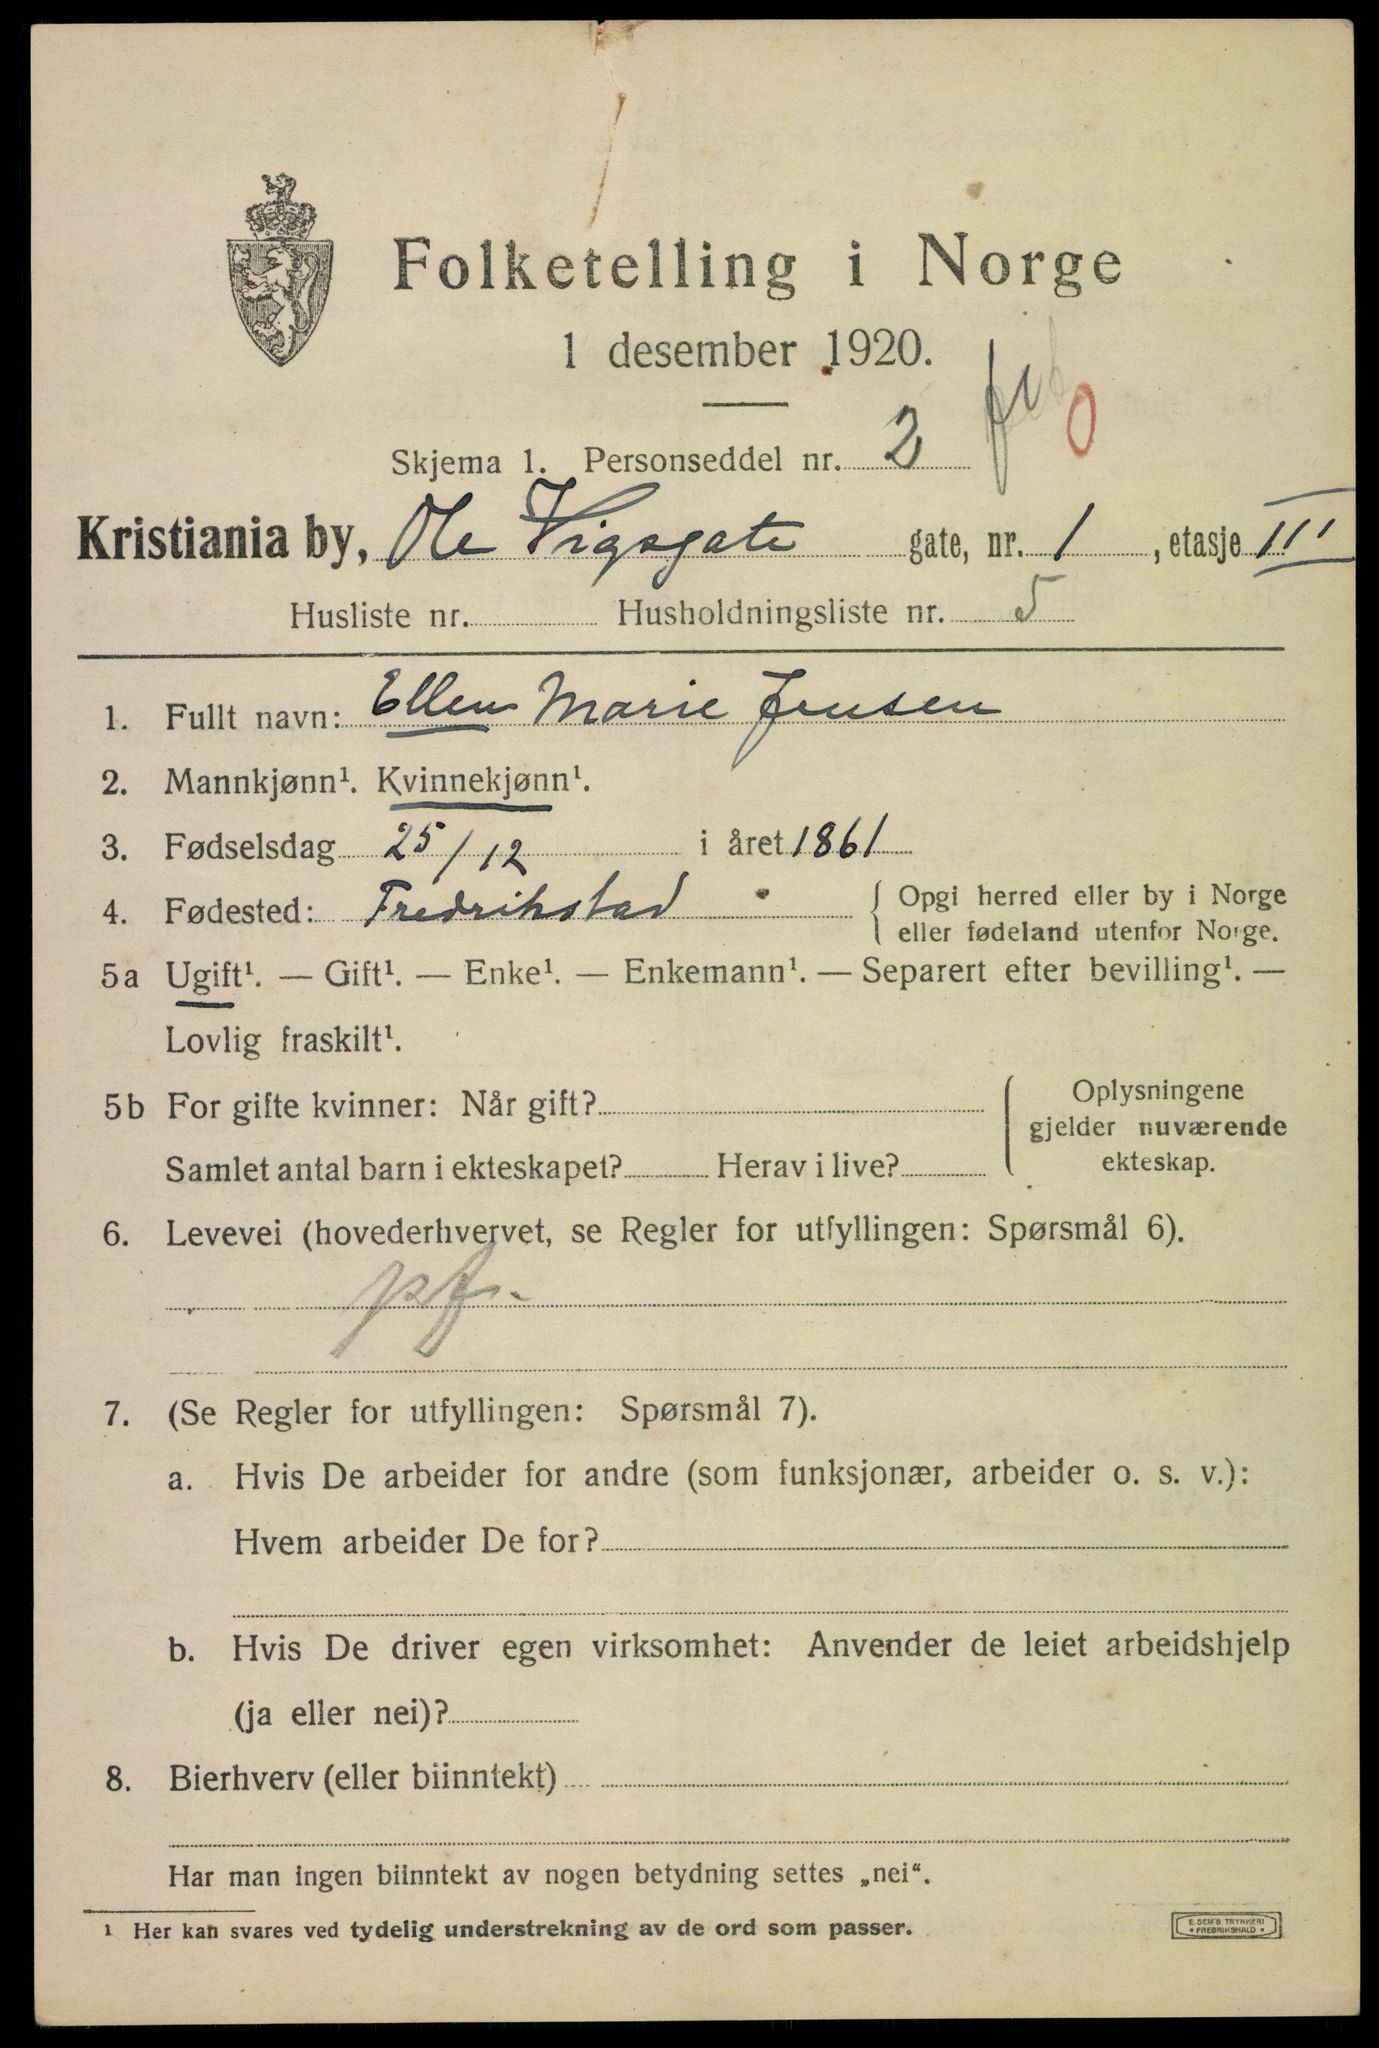 Folketelling i Norge
1 desember 1920.
Skjema 1. Personseddel nr. 2
0
Kristiania by, Ole Vigsgate gate, nr. 1, etasje III
Husliste nr. Husholdningsliste nr. 5
1. Fullt navn: Ellen Marie Jensen
2. Mannkjønn¹. Kvinnekjønn¹.
3. Fødselsdag 25/12 i året 1861
4. Fødested: Fredrikstad { Opgi herred eller by i Norge
eller fødeland utenfor Norge.
5a Ugift¹. — Gift¹. — Enke¹. — Enkemann¹. — Separert efter bevilling¹. —
Lovlig fraskilt¹.
5b For gifte kvinner: Når gift? { Oplysningene
gjelder nuværende
Samlet antal barn i ekteskapet? Herav i live? ekteskap.
6. Levevei (hovederhvervet, se Regler for utfyllingen: Spørsmål 6).
pf.
7. (Se Regler for utfyllingen: Spørsmål 7).
a. Hvis De arbeider for andre (som funksjonær, arbeider o. s. v.):
Hvem arbeider De for?
b. Hvis De driver egen virksomhet: Anvender de leiet arbeidshjelp
(ja eller nei)?
8. Bierhverv (eller biinntekt)
Har man ingen biinntekt av nogen betydning settes „nei“.
¹ Her kan svares ved tydelig understrekning av de ord som passer.
E. SEM'S TRYKKERI
• FREDRIKSHALD •